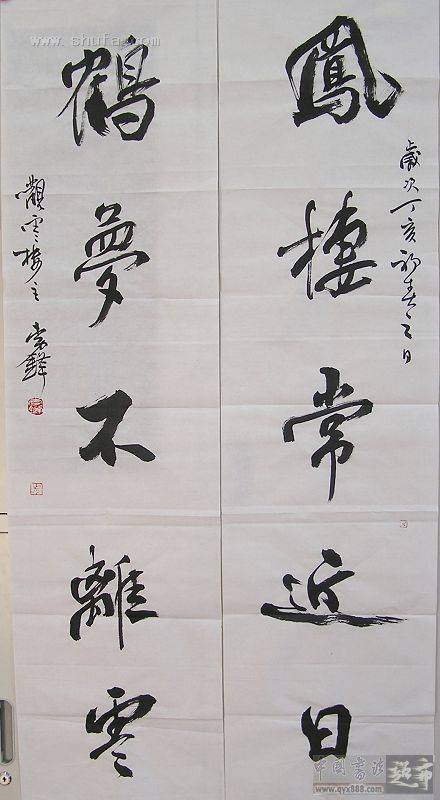 鳳棲常近日
歲次丁亥初春之日
鶴夢不離雲
觀雲樓主
www.shufa.com
中国书法
www.qyx888.com